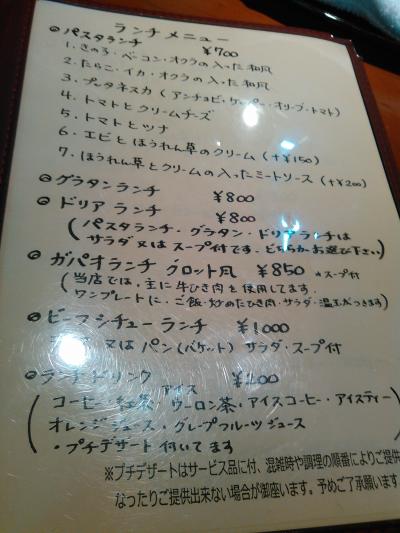 ランチメニュー
◎パスタランチ ¥700
1. きのこ・ベーコン・オクラの入った和風
2. たらこ・イカ・オクラの入った和風
3. プッタネスカ (アンチョビ・ケーパー・オリーブ・トマト)
4. トマトとクリームチーズ
5. トマトとツナ
6. エビとほうれん草のクリーム (+¥150)
7. ほうれん草とクリームの入ったミートソース (+¥200)
◎グラタンランチ ¥800
◎ドリアランチ ¥800
(パスタランチ・グラタン・ドリアランチは
サラダ又はスープ付です。どちらかお選び下さい)
◎ガパオランチ グロット風 ¥850 *スープ付
(当店では、主に牛ひき肉を使用してます。
ワンプレートに・ご飯・炒めたひき肉・サラダ・温玉がつきます)
◎ビーフシチューランチ ¥1000
又はパン(バケット) サラダ・スープ付
◎ランチドリンク
(コーヒー・紅茶 アイスウーロン茶・アイスコーヒー・アイスティー
オレンジジュース・グレープフルーツジュース
・プチデザート付いてます
※プチデザートはサービス品に付、混雑時や調理の順番によりご提供
なったりご提供出来ない場合が御座います。予めご了承願います